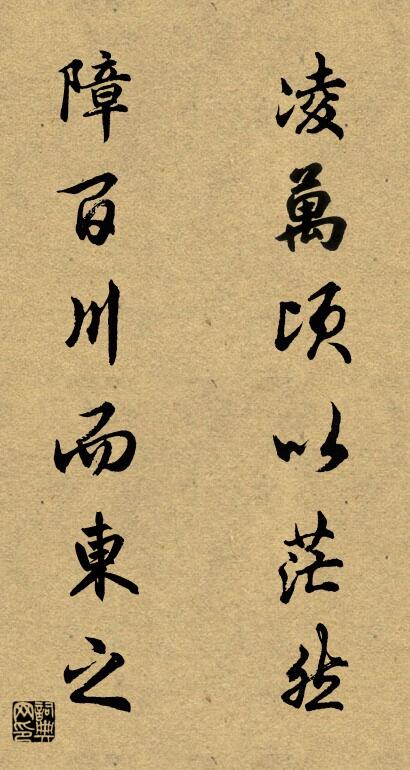 凌萬頃以茫然
障百川而東之
詞典網印